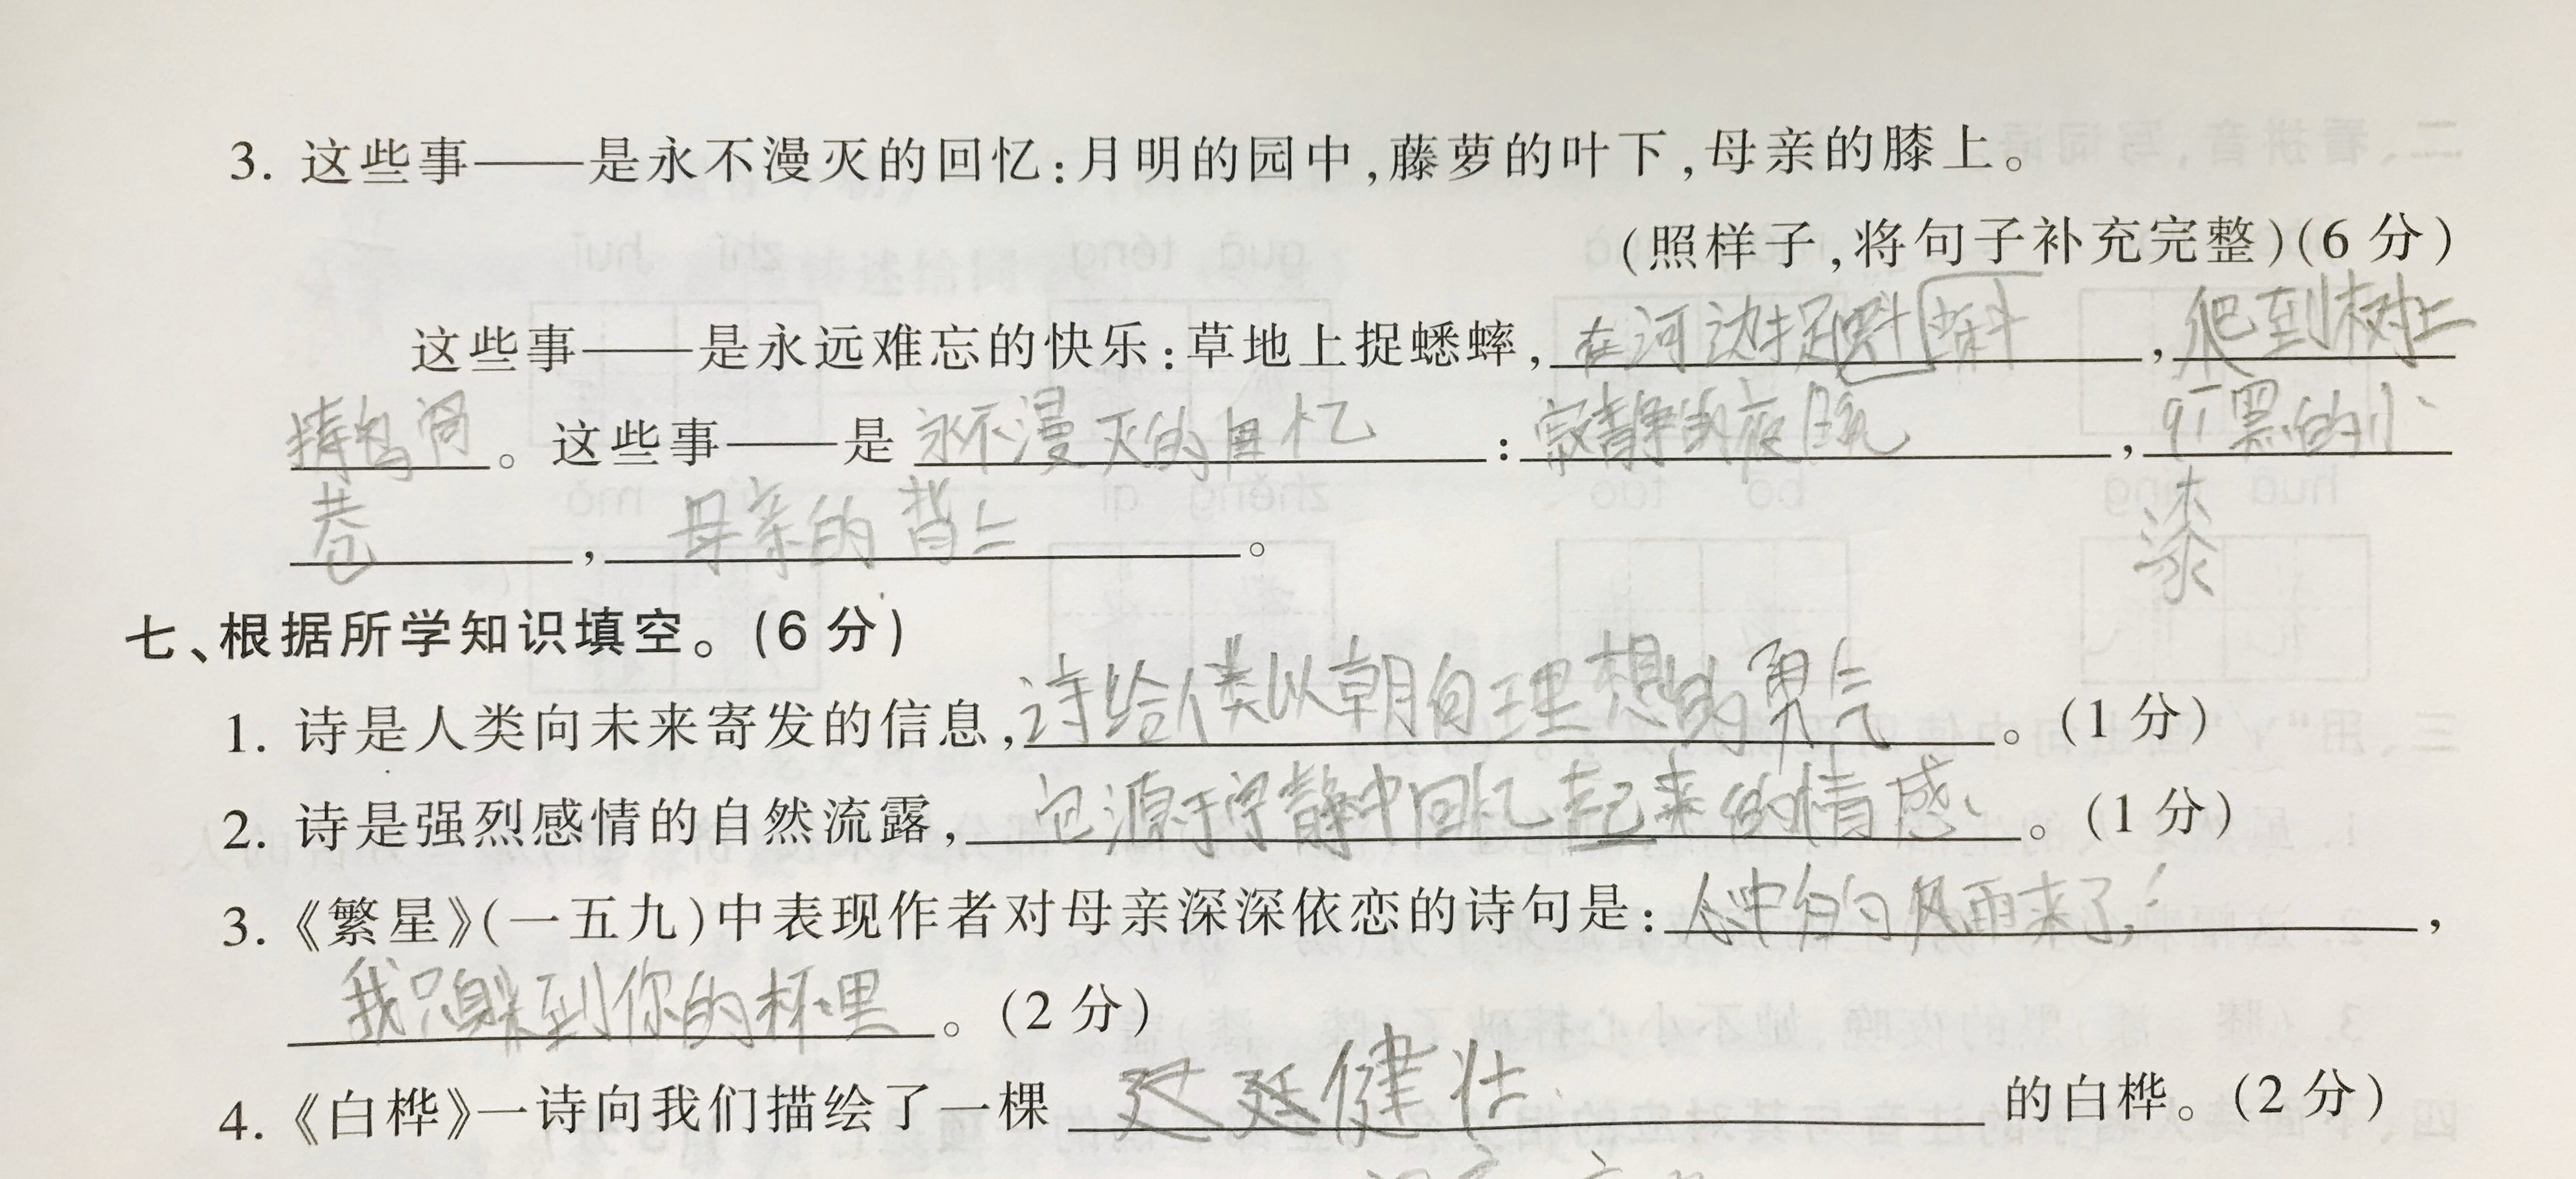 3. 这些事——是永不漫灭的回忆:月明的园中,藤萝的叶下,母亲的膝上。
(照样子,将句子补充完整)(6 分)
这些事——是永远难忘的快乐:草地上捉蟋蟀,在河边捉蝌蚪,爬到树上
掏鸟窝。这些事——是永不漫灭的回忆:寂静的夜晚,黑的小
巷,母亲的背上。
漆
七、根据所学知识填空。(6 分)
1. 诗是人类向未来寄发的信息,诗给人类以朝向理想的勇气。(1 分)
2. 诗是强烈感情的自然流露,它源于宁静中回忆起来的情感。(1 分)
3.《繁星》(一五九)中表现作者对母亲深深依恋的诗句是:心中的风雨来了,
我只躲到你的怀里。(2 分)
4.《白桦》一诗向我们描绘了一棵 健壮 的白桦。(2 分)